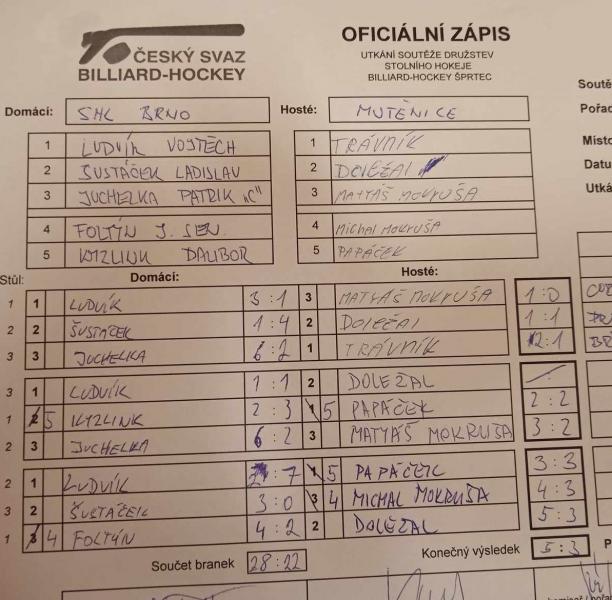 ČESKÝ SVAZ
BILLIARD-HOCKEY
OFICIÁLNÍ ZÁPIS
UTKÁNÍ SOUTĚŽE DRUŽSTEV
STOLNÍHO HOKEJE
BILLIARD-HOCKEY ŠPRTEC
Domácí: SHL BRNO Hosté: MUTĚNICE
1 LUDVÍK VOJTĚCH 1 TRÁVNÍK
2 ŠUSTÁČEK LADISLAV 2 DOLEŽAL
3 JUCHELKA PATRIK "C" 3 MATYÁŠ MOKRUŠA
4 FOLTÝN J. SEN. 4 MICHAL MOKRUŠA
5 KYZLINK DALIBOR 5 PAPÁČEK
Stůl: Domácí: Hosté:
1 1 LUDVÍK 3:1 3 MATYÁŠ MOKRUŠA 1:0
2 2 ŠUSTÁČEK 1:4 2 DOLEŽAL 1:1
3 3 JUCHELKA 6:2 1 TRÁVNÍK 2:1
3 1 LUDVÍK 1:1 2 DOLEŽAL
1 2 5 KYZLINK 2:3 1 5 PAPÁČEK 2:2
2 3 JUCHELKA 6:2 3 MATYÁŠ MOKRUŠA 3:2
2 1 LUDVÍK :7 1 5 PAPÁČEK 3:3
3 2 ŠUSTÁČEK 3:0 3 4 MICHAL MOKRUŠA 4:3
1 3 4 FOLTÝN 4:2 2 DOLEŽAL 5:3
Součet branek 28:22 Konečný výsledek 5:3
Soutě
Pořad
Místo
Datu
Utká